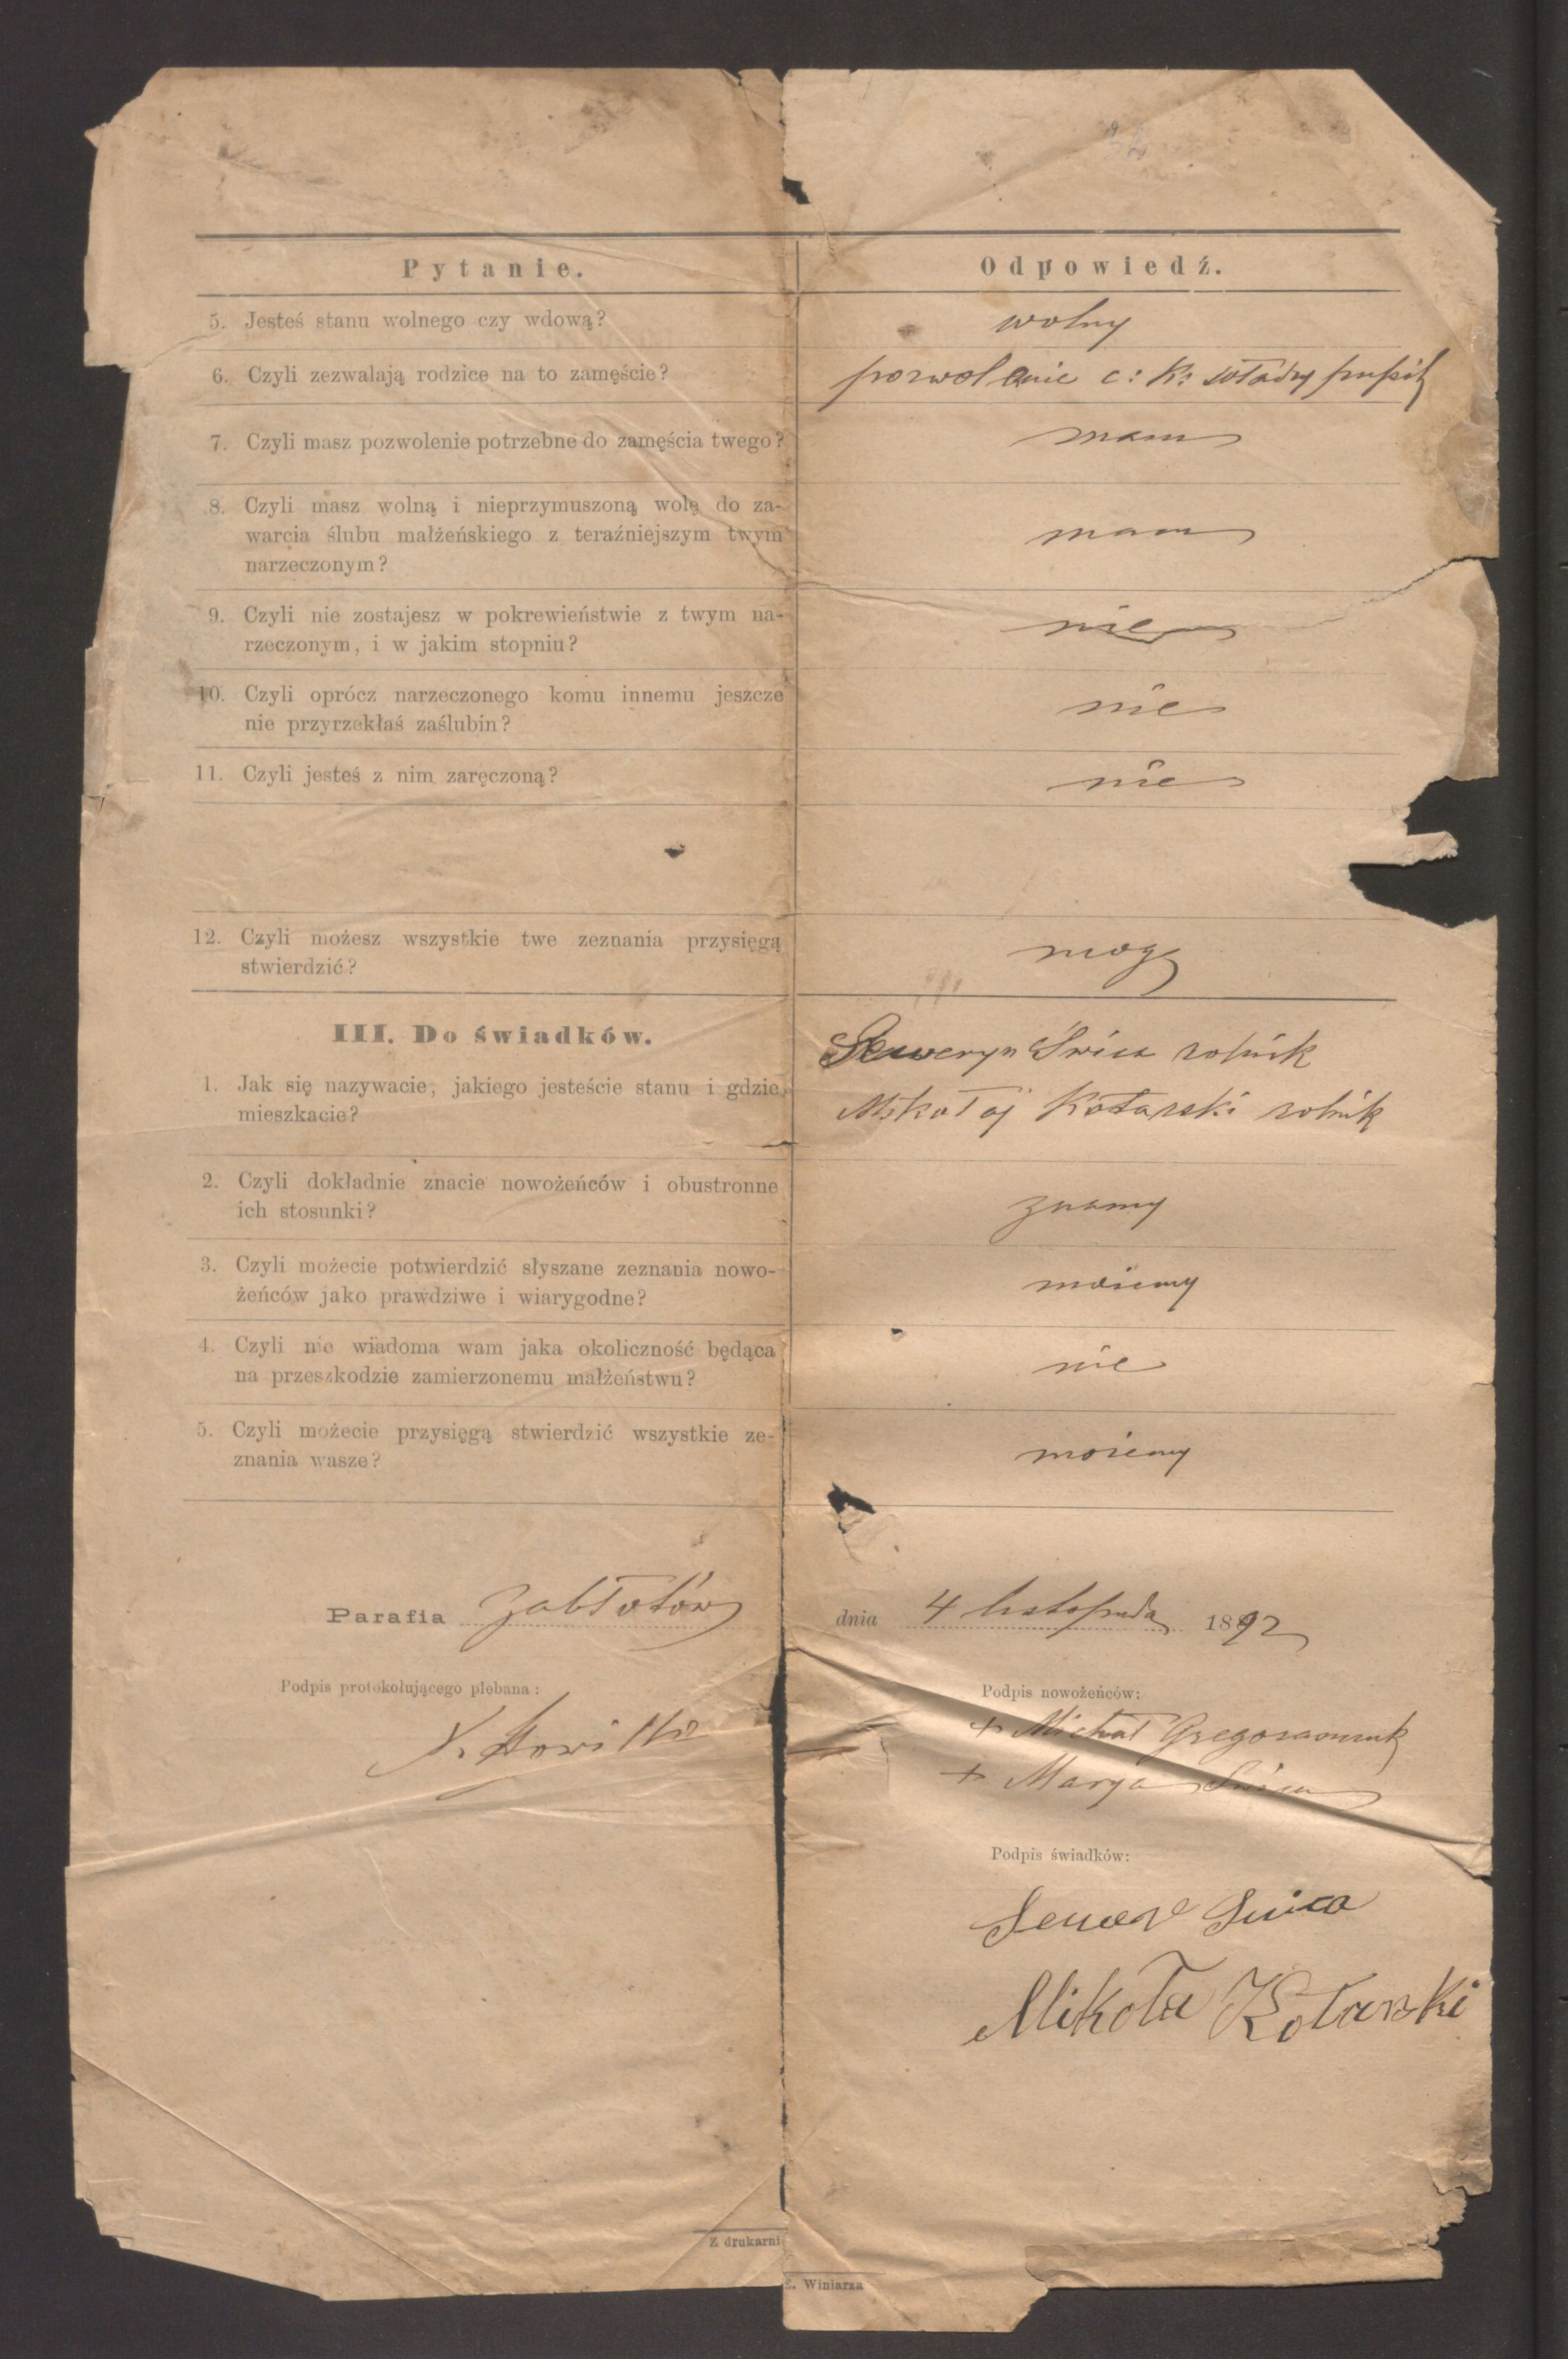 32
Pytanie.
Odpowiedź.
5. Jesteś stanu wolnego czy wdową?
wolny
6. Czyli zezwalają rodzice na to zamęście?
pozwolenie c: k:
7. Czyli masz pozwolenie potrzebne do zamęścia twego?
mam
8. Czyli masz wolną i nieprzymuszoną wolę do za-
warcia ślubu małżeńskiego z teraźniejszym twym
narzeczonym?
mam
9. Czyli nie zostajesz w pokrewieństwie z twym na-
rzeczonym, i w jakim stopniu?
nie
10. Czyli oprócz narzeczonego komu innemu jeszcze
nie przyrzekłaś zaślubin?
nie
11. Czyli jesteś z nim zaręczoną?
nie
12. Czyli możesz wszystkie twe zeznania przysięgą
stwierdzić?
mogę
III. Do świadków.
1. Jak się nazywacie, jakiego jesteście stanu i gdzie
mieszkacie?
Seweryn Świca rolnik
Mikołaj Kotarski rolnik
2. Czyli dokładnie znacie nowożeńców i obustronne
ich stosunki?
znamy
3. Czyli możecie potwierdzić słyszane zeznania nowo-
żeńców jako prawdziwe i wiarygodne?
możemy
4. Czyli nie wiadoma wam jaka okoliczność będąca
na przeszkodzie zamierzonemu małżeństwu?
nie
5. Czyli możecie przysięgą stwierdzić wszystkie ze-
znania wasze?
możemy
Parafia Zabłotów
dnia 4 listopada 1892
Podpis protokołującego plebana:
Podpis nowożeńców:
+ Michał
+ Marya Świca
Podpis świadków:
Sewer Swica
Mikoła Kotarski
Z drukarni
E. Winiarza